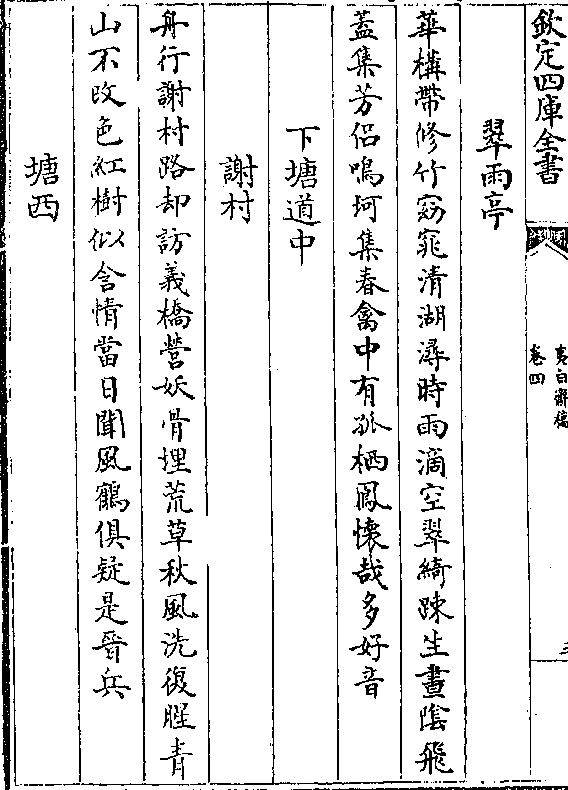 欽定四庫全書
夷白齋稿
卷四
翠雨亭
華構帶修竹窈窕清湖潯時雨滴空翠綺踈生晝陰飛
蓋集芳侣鳴珂集春禽中有孤栖鳳懐哉多好音
下塘道中
謝村
舟行謝村路却訪義橋營妖骨埋荒草秋風洗復腥青
山不改色紅樹似含情當日聞風鶴俱疑是晉兵
塘西